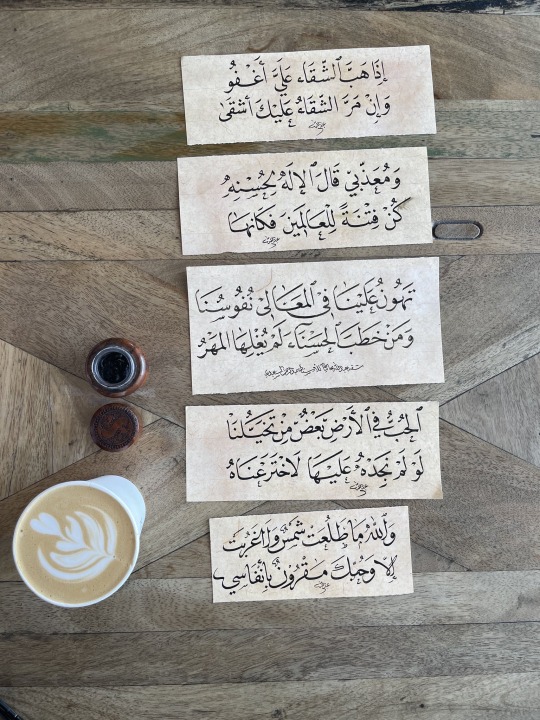 إِذَا هَبَّ الشَّقَاء عَلَيَّ أَغْفُو
وَإِنْ مَرَّ الشَّقَاءُ عَلَيْكَ أَشْقَى
وَمُعَذِّبِي قَالَ الإِلَهُ لِحُسْنِهِ
كُنْ فِتْنَةً لِلْعَالَمِينَ فَكَانَهَا
تَهُونُ عَلَيْنَا فِي المَعَالِي نُفُوسُنَا
وَمَنْ خَطَبَ الحَسْنَاءَ لَمْ يُغْلِهَا المَهْرُ
الحُبُّ فِي الأَرْضِ بَعْضٌ مِنْ تَخَيُّلِنَا
لَوْ لَمْ نَجِدْهُ عَلَيْهَا لَاخْتَرَعْنَاهُ
وَاللهِ مَا طَلَعَتْ شَمْسٌ وَلَا غَرُبَتْ
إِلَّا وَحُبُّكَ مَقْرُونٌ بِأَنْفَاسِي